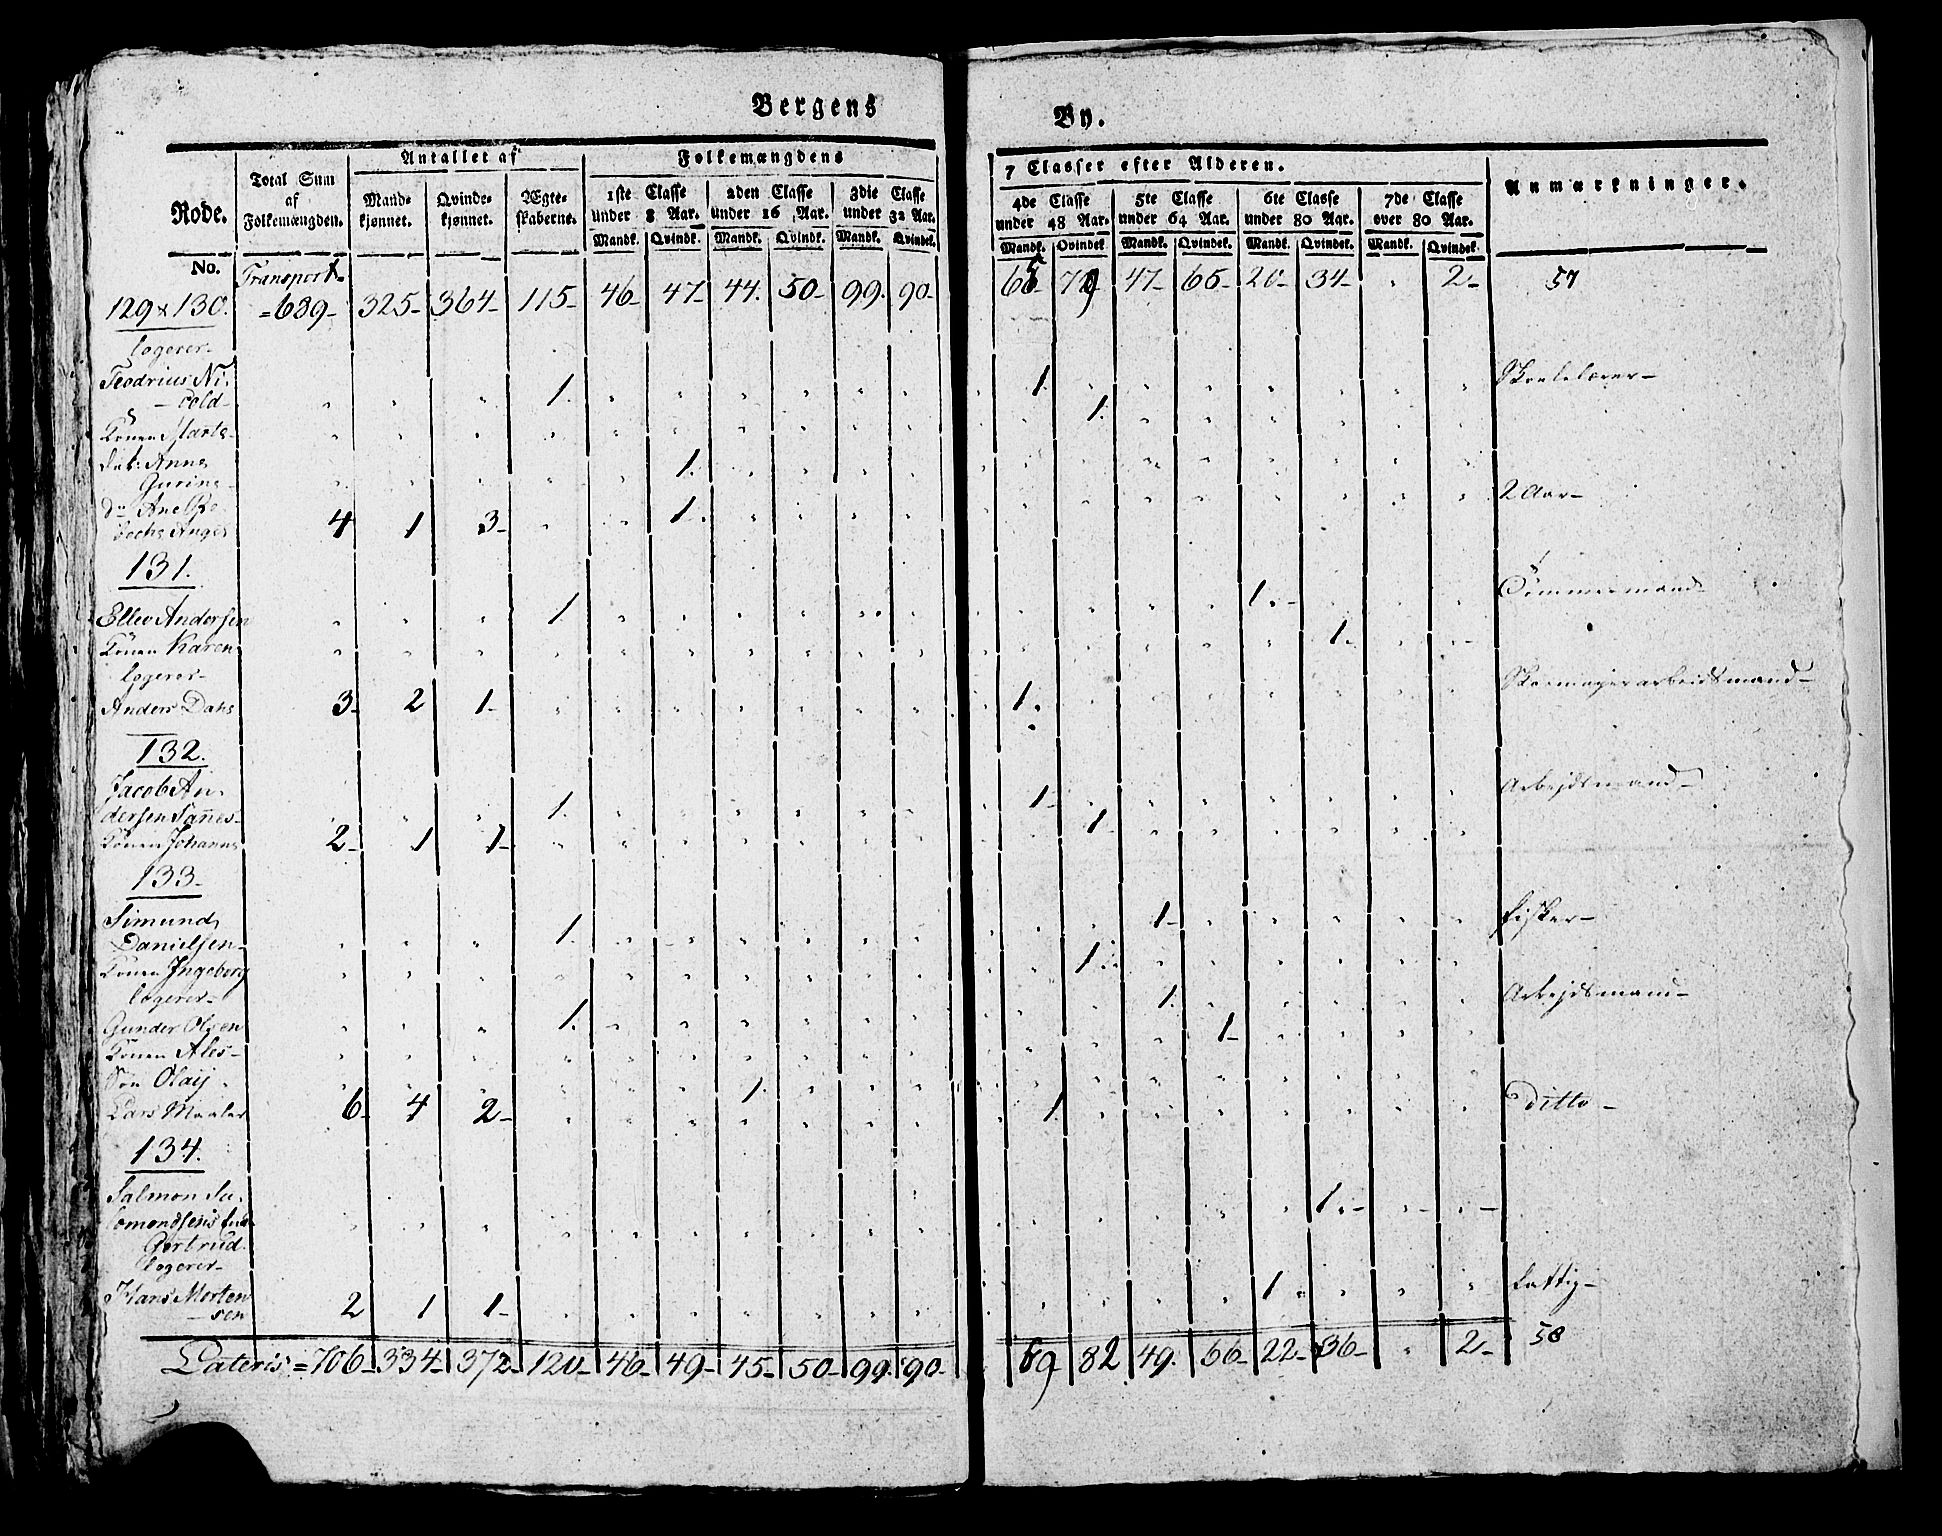 Bergens By.
Rode. Total Sum af Folkemængden. Antallet af Folkemængdens 7 Classer efter Alderen. Anmærkninger.
Mandkjønnet. Qvindekjønnet. Ægteskaberne. 1ste Classe under 8 Aar. 2den Classe under 16 Aar. 3die Classe under 32 Aar. 4de Classe under 48 Aar. 5te Classe under 64 Aar. 6te Classe under 80 Aar. 7de Classe over 80 Aar.
Mandk. Qvindk. Mandk. Qvindk. Mandk. Qvindek. Mandk. Qvindek. Mandk. Qvindk. Mandk. Qvindek. Mandk. Qvindek.
No. Transport
129 & 130. 689 325 364 115 46 47 44. 50 99. 90 65 79 47 65 20 34 " 2 57
logerer
Teodrius Ni-
cold 1. 1. Skolelærer
Konen Marte 1.
Dat: Anne
Gurine 1.
do Ane Re
becha Anges 4 1 3 1. 2 Aar
131.
Ellev Andersen 1. 1. Tømmermand
Konen Karen 1.
logerer
Anders Dahs 3 2 1 1. Skoemagerarbeidsmand
132.
Jacob An-
dersen Sannes 1. 1 Arbejdsmand
Konen Johanne 2 1 1 1
133.
Simund
Danielsen 1. 1 Fisker
Konen Ingeborg 1.
logerer
Gunder Olsen 1. 1. Arbejdsmand
Konen Ales 1
Søn Olaij 1.
Lars Maaler 6 4 2 1. Ditto
134.
Salmon Sa-
lomondsens
Gertrud 1.
logerer
Hans Morten
sen 2 1 1 1 Fattig
Lateris = 706 334 372 120 46 49 45 50 99. 90 69 82 49. 66 22 36 " 2 58